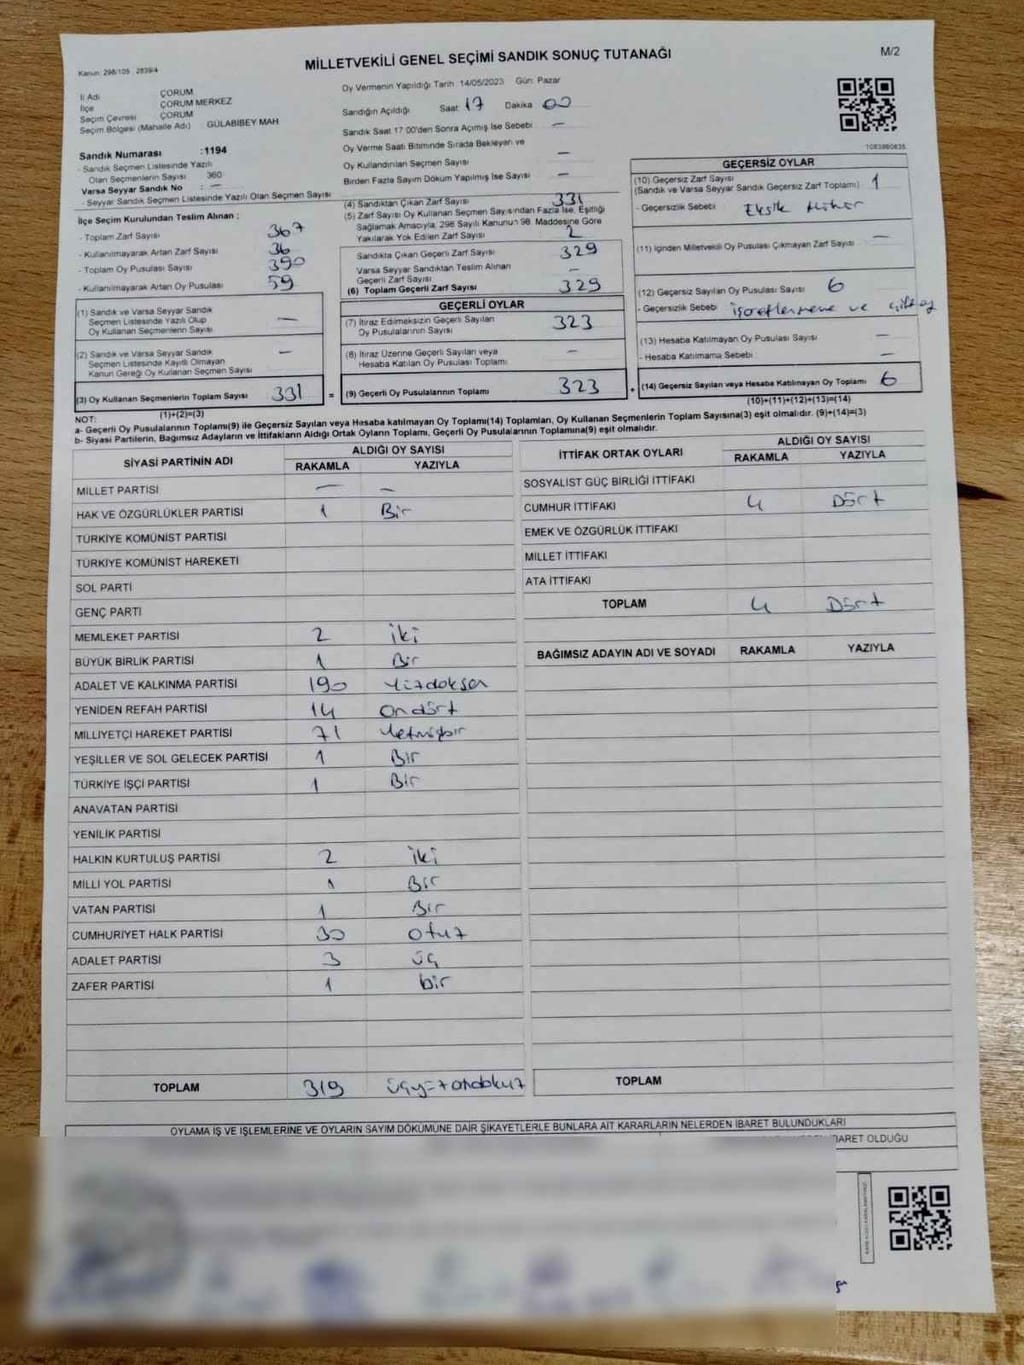 MİLLETVEKİLİ GENEL SEÇİMİ SANDIK SONUÇ TUTANAĞI
M/2
Kanun: 298/105 2839/4
İl Adı ÇORUM
İlçe ÇORUM MERKEZ
Seçim Çevresi ÇORUM
Seçim Bölgesi (Mahalle Adı) GÜLABİBEY MAH
Sandık Numarası :1194
- Sandık Seçmen Listesinde Yazılı
Olan Seçmenlerin Sayısı 360
Varsa Seyyar Sandık No : —
- Seyyar Sandık Seçmen Listesinde Yazılı Olan Seçmen Sayısı
İlçe Seçim Kurulundan Teslim Alınan ;
- Toplam Zarf Sayısı 367
- Kullanılmayarak Artan Zarf Sayısı 36
- Toplam Oy Pusulası Sayısı 390
- Kullanılmayarak Artan Oy Pusulası 59
(1) Sandık ve Varsa Seyyar Sandık
Seçmen Listesinde Yazılı Olup
Oy Kullanan Seçmenlerin Sayısı —
(2) Sandık ve Varsa Seyyar Sandık
Seçmen Listesinde Kayıtlı Olmayan
Kanun Gereği Oy Kullanan Seçmen Sayısı —
(3) Oy Kullanan Seçmenlerin Toplam Sayısı 331
(1)+(2)=(3)
Oy Vermenin Yapıldığı Tarih :14/05/2023 Gün: Pazar
Sandığın Açıldığı Saat: 17 Dakika 00
Sandık Saat 17:00'den Sonra Açımış İse Sebebi —
Oy Verme Saati Bitiminde Sırada Bekleyen ve
Oy Kullandırılan Seçmen Sayısı —
Birden Fazla Sayım Döküm Yapılmış İse Sayısı —
(4) Sandıktan Çıkan Zarf Sayısı 331
(5) Zarf Sayısı Oy Kullanan Seçmen Sayısından Fazla İse, Eşitliği
Sağlamak Amacıyla, 298 Sayılı Kanunun 98. Maddesine Göre
Yakılarak Yok Edilen Zarf Sayısı 2
Sandıkta Çıkan Geçerli Zarf Sayısı 329
Varsa Seyyar Sandıktan Teslim Alınan
Geçerli Zarf Sayısı —
(6) Toplam Geçerli Zarf Sayısı 329
GEÇERLİ OYLAR
(7) İtiraz Edilmeksizin Geçerli Sayılan
Oy Pusulalarının Sayısı 323
(8) İtiraz Üzerine Geçerli Sayılan veya
Hesaba Katılan Oy Pusulası Toplamı —
= (9) Geçerli Oy Pusulalarının Toplamı 323
1083860835
GEÇERSİZ OYLAR
(10) Geçersiz Zarf Sayısı
(Sandık ve Varsa Seyyar Sandık Geçersiz Zarf Toplamı) 1
- Geçersizlik Sebebi Eksik Mühür
(11) İçinden Milletvekili Oy Pusulası Çıkmayan Zarf Sayısı —
(12) Geçersiz Sayılan Oy Pusulası Sayısı 6
- Geçersizlik Sebebi işaretlenmeme ve çift oy
(13) Hesaba Katılmayan Oy Pusulası Sayısı —
- Hesaba Katılmama Sebebi —
+ (14) Geçersiz Sayılan veya Hesaba Katılmayan Oy Toplamı 6
(10)+(11)+(12)+(13)=(14)
NOT:
a- Geçerli Oy Pusulalarının Toplamı(9) ile Geçersiz Sayılan veya Hesaba katılmayan Oy Toplamı(14) Toplamları, Oy Kullanan Seçmenlerin Toplam Sayısına(3) eşit olmalıdır. (9)+(14)=(3)
b- Siyasi Partilerin, Bağımsız Adayların ve İttifakların Aldığı Ortak Oyların Toplamı, Geçerli Oy Pusulalarının Toplamına(9) eşit olmalıdır.
SİYASİ PARTİNİN ADI ALDIĞI OY SAYISI
RAKAMLA YAZIYLA
MİLLET PARTİSİ — —
HAK VE ÖZGÜRLÜKLER PARTİSİ 1 Bir
TÜRKİYE KOMÜNİST PARTİSİ
TÜRKİYE KOMÜNİST HAREKETİ
SOL PARTİ
GENÇ PARTİ
MEMLEKET PARTİSİ 2 iki
BÜYÜK BİRLİK PARTİSİ 1 Bir
ADALET VE KALKINMA PARTİSİ 190 Yüzdoksan
YENİDEN REFAH PARTİSİ 14 Ondört
MİLLİYETÇİ HAREKET PARTİSİ 71 Yetmişbir
YEŞİLLER VE SOL GELECEK PARTİSİ 1 Bir
TÜRKİYE İŞÇİ PARTİSİ 1 Bir
ANAVATAN PARTİSİ
YENİLİK PARTİSİ
HALKIN KURTULUŞ PARTİSİ 2 iki
MİLLİ YOL PARTİSİ 1 Bir
VATAN PARTİSİ 1 Bir
CUMHURİYET HALK PARTİSİ 30 otuz
ADALET PARTİSİ 3 üç
ZAFER PARTİSİ 1 bir
TOPLAM 319 üçyüzondokuz
İTTİFAK ORTAK OYLARI ALDIĞI OY SAYISI
RAKAMLA YAZIYLA
SOSYALİST GÜÇ BİRLİĞİ İTTİFAKI
CUMHUR İTTİFAKI 4 Dört
EMEK VE ÖZGÜRLÜK İTTİFAKI
MİLLET İTTİFAKI
ATA İTTİFAKI
TOPLAM 4 Dört
BAĞIMSIZ ADAYIN ADI VE SOYADI RAKAMLA YAZIYLA
TOPLAM
OYLAMA İŞ VE İŞLEMLERİNE VE OYLARIN SAYIM DÖKÜMÜNE DAİR ŞİKAYETLERLE BUNLARA AİT KARARLARIN NELERDEN İBARET BULUNDUKLARI
İBARET OLDUĞU